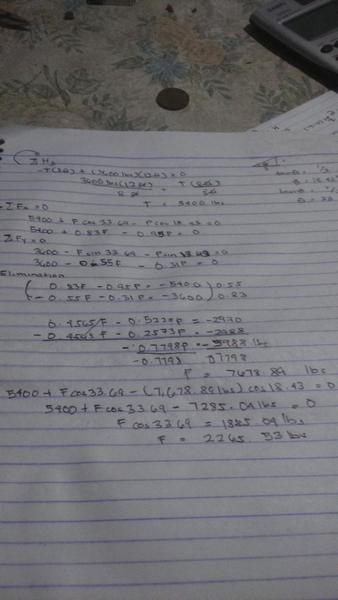 ΣH₀
-T(8ft) + (3600 lbs)(12ft) = 0
3600 lbs (12ft) = T(8ft)
8ft 8ft
T = 5400 lbs
ΣFx = 0
5400 + F cos 33.69 - P cos 18.43 = 0
5400 + 0.83F - 0.95P = 0
ΣFy = 0
3600 - F sin 33.69 - P sin 18.43 = 0
3600 - 0.55F - 0.31P = 0
Elimination
( 0.83F - 0.95P = -5400 ) 0.55
( - 0.55F - 0.31P = -3600 ) 0.83
0.4565F - 0.5225P = -2970
- 0.4565F - 0.2573P = -2988
- 0.7798P = -5988 lbs
-0.7798 0.7798
P = 7678.89 lbs
5400 + F cos 33.69 - (7,678.89 lbs) cos 18.43 = 0
5400 + F cos 33.69 - 7285.04 lbs = 0
F cos 33.69 = 1885.04 lbs
F = 2265.53 lbs